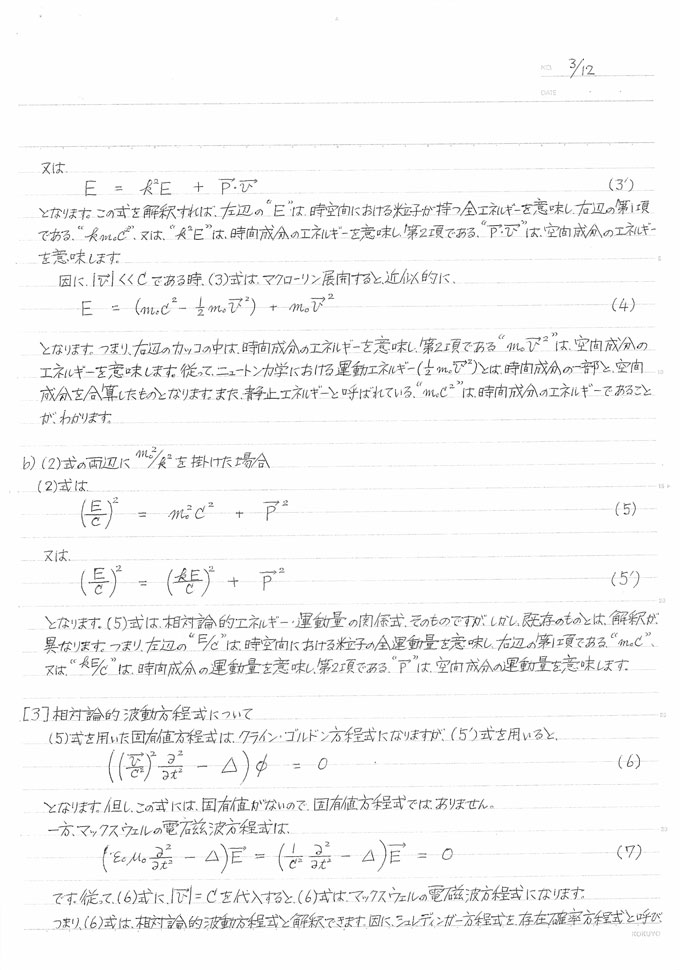 NO. 3/12
DATE
又は
E = k²E + P⃗·v⃗ (3')
となります。この式を解釈すれば、左辺の“E”は、時空間における粒子が持つ全エネルギーを意味し、右辺の第1項
である、“km₀c²”、又は、“k²E”は、時間成分のエネルギーを意味し、第2項である、“P⃗·v⃗”は、空間成分のエネルギー
を意味します。
因に、|v⃗|<<cである時、(3)式は、マクローリン展開すると、近似的に、
E = (m₀c² - ½m₀v⃗²) + m₀v⃗² (4)
となります。つまり、右辺のカッコの中は、時間成分のエネルギーを意味し、第2項である“m₀v⃗²”は、空間成分の
エネルギーを意味します。従って、ニュートン力学における運動エネルギー(½m₀v⃗²)とは、時間成分の一部と、空間
成分を合算したものとなります。また、静止エネルギーと呼ばれている、“m₀c²”は、時間成分のエネルギーであること
が、わかります。
b) (2)式の両辺に m₀²/k² を掛けた場合
(2)式は
(E/c)² = m₀²c² + P⃗² (5)
又は
(E/c)² = (kE/c)² + P⃗² (5')
となります。(5)式は、相対論的エネルギー・運動量の関係式、そのものですが、しかし、既存のものとは、解釈が
異なります。つまり、左辺の“E/c”は、時空間における粒子の全運動量を意味し、右辺の第1項である、“m₀c”、
又は、“kE/c”は、時間成分の運動量を意味し、第2項である、“P⃗”は、空間成分の運動量を意味します。
[3]相対論的波動方程式について
(5)式を用いた固有値方程式は、クライン・ゴルドン方程式になりますが、(5')式を用いると、
((v⃗/c²)² ∂²/∂t² - Δ)φ = 0 (6)
となります。但し、この式には、固有値がないので、固有値方程式では、ありません。
一方、マックスウェルの電磁波方程式は、
(ε₀μ₀ ∂²/∂t² - Δ)E⃗ = (1/c² ∂²/∂t² - Δ)E⃗ = 0 (7)
です。従って、(6)式に、|v⃗|=cを代入すると、(6)式は、マックスウェルの電磁波方程式になります。
つまり、(6)式は、相対論的波動方程式と解釈できます。因に、シュレディンガー方程式を、存在確率方程式と呼び
KOKUYO